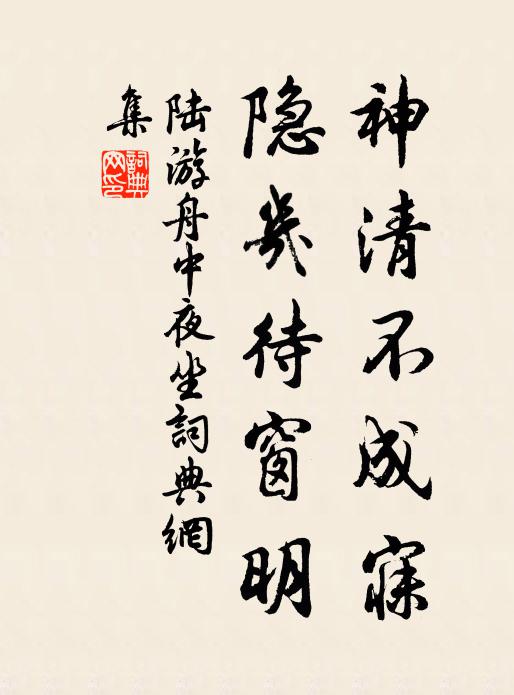 神清不成寐
隐几待窗明
陆游舟中夜坐词典網
集
詞典
网印